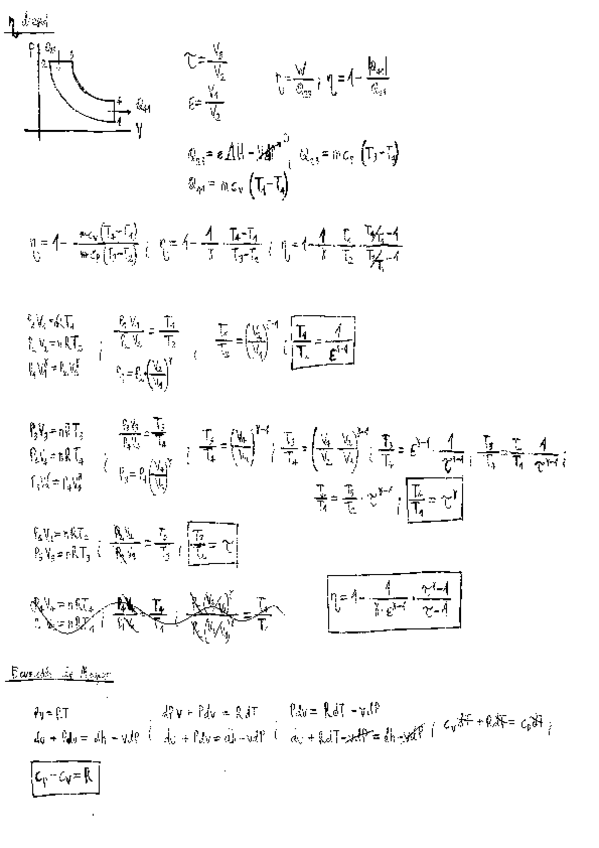 η diesel
P Q₂₃
2 3
4
Q₄₁
1
V
τ = V₃/V₂
ε = V₁/V₂
η = W/Q₂₃ ; η = 1 - |Q₄₁|/Q₂₃
Q₂₃ = ΔH - ; Q₂₃ = m cₚ (T₃-T₂)
Q₄₁ = m cᵥ (T₄-T₁)
η = 1 - m cᵥ(T₄-T₁)/m cₚ(T₃-T₂) ; η = 1 - 1/γ · (T₄-T₁)/(T₃-T₂) ; η = 1 - 1/γ · T₁/T₂ · (T₄/T₁ - 1)/(T₃/T₂ - 1)
P₁V₁ = nRT₁
P₂V₂ = nRT₂
P₁V₁^γ = P₂V₂^γ
; P₁V₁/P₂V₂ = T₁/T₂
P₁ = P₂(V₂/V₁)^γ
; T₁/T₂ = (V₂/V₁)^γ-1 ; T₁/T₂ = 1/ε^γ-1
P₃V₃ = nRT₃
P₄V₄ = nRT₄
P₃V₃^γ = P₄V₄^γ
; P₃V₃/P₄V₄ = T₃/T₄
P₃ = P₄(V₄/V₃)^γ
; T₃/T₄ = (V₄/V₃)^γ-1 ; T₃/T₄ = (V₄/V₂ · V₂/V₃)^γ-1 ; T₃/T₄ = ε^γ-1 · 1/τ^γ-1 ; T₃/T₄ = T₂/T₁ · 1/τ^γ-1 ;
T₄/T₁ = T₃/T₂ · τ^γ-1 ; T₄/T₁ = τ^γ
P₂V₂ = nRT₂
P₃V₃ = nRT₃
; P₂V₂/P₃V₃ = T₂/T₃ ; T₃/T₂ = τ
P₄V₄ = nRT₄
= nRT₁
η = 1 - 1/(γ·ε^γ-1) · (τ^γ-1)/(τ-1)
Mayer
Pv = RT
du + Pdv = dh - vdP
; dPv + Pdv = RdT
du + Pdv = dh - vdP
; Pdv = RdT - vdP
du + RdT - vdP = dh - vdP
; cᵥdT + RdT = cₚdT ;
cₚ - cᵥ = R